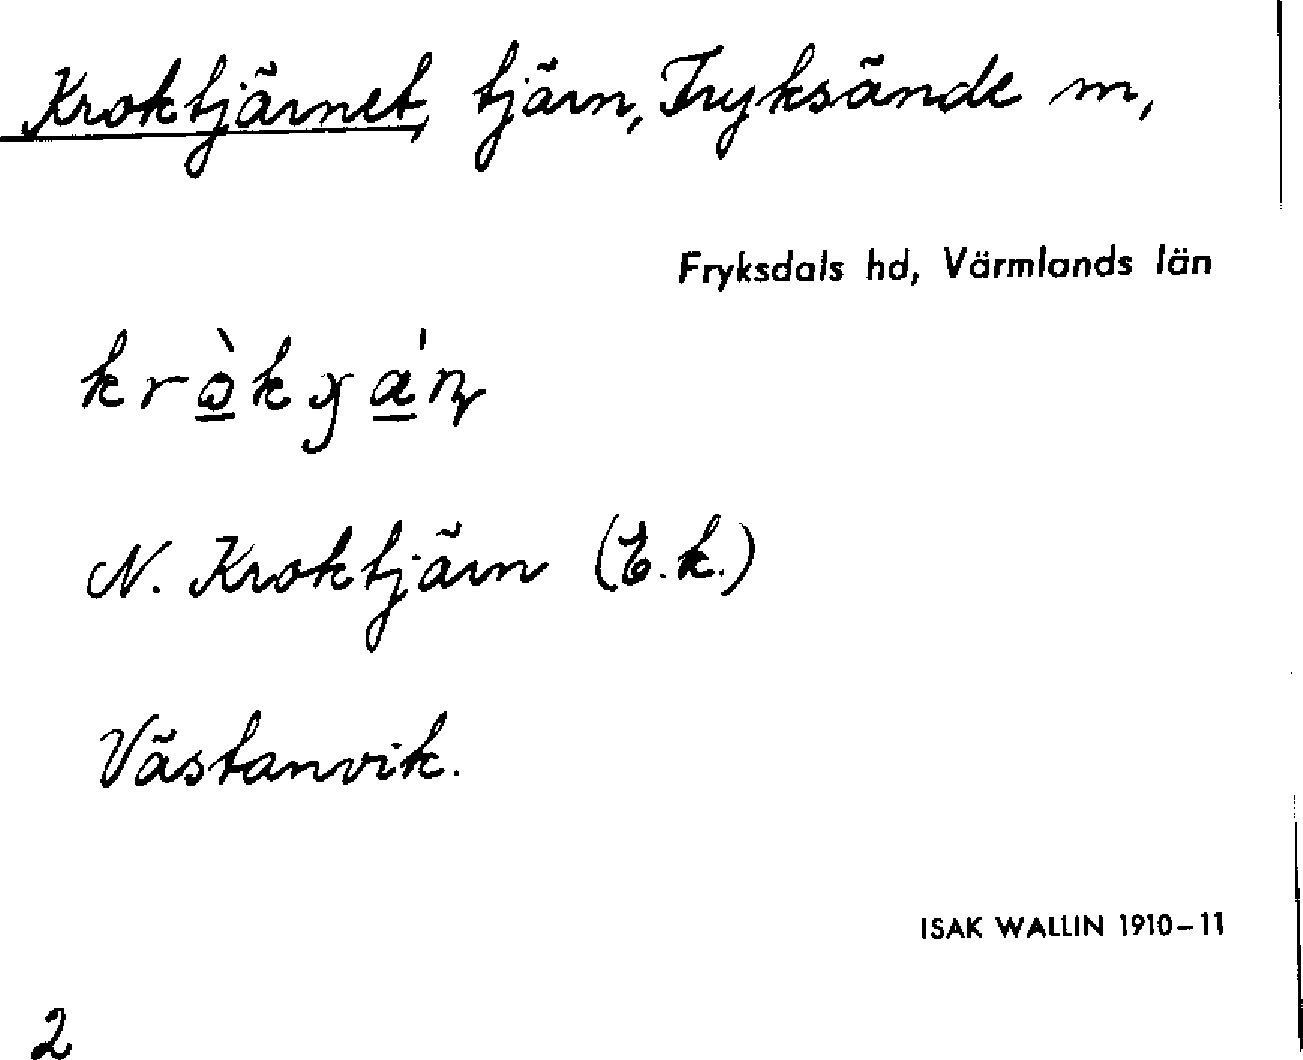 Kroktjärnet, tjärn, Fryksände m,
Fryksdals hd, Värmlands län
N. Kroktjärn (E.k.)
Västanvik.
ISAK WALLIN 1910-11
2